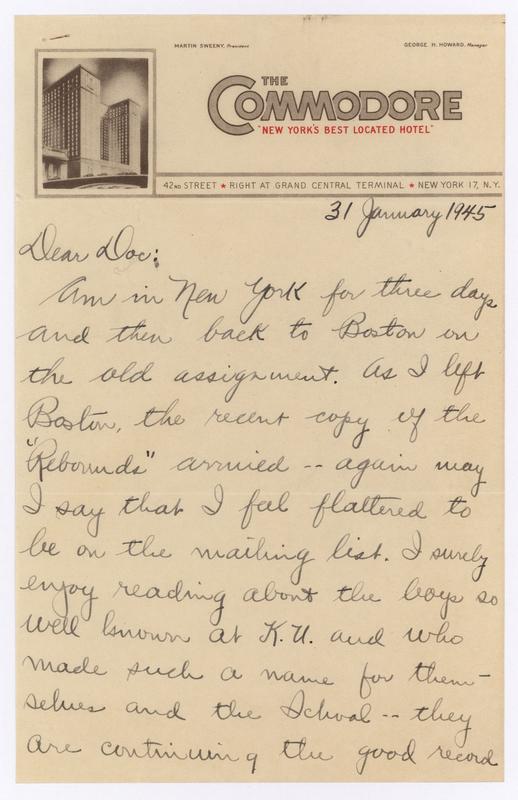 MARTIN SWEENY, President
GEORGE H. HOWARD, Manager
THE
COMMODORE
"NEW YORK'S BEST LOCATED HOTEL"
42ND STREET ★ RIGHT AT GRAND CENTRAL TERMINAL ★ NEW YORK 17, N.Y.
31 January 1945
Dear Doc:
Am in New York for three days
and then back to Boston on
the old assignment. As I left
Boston, the recent copy of the
"Rebounds" arrived -- again may
I say that I feel flattered to
be on the mailing list. I surely
enjoy reading about the boys so
well known at K.U. and who
made such a name for them-
selves and the School -- they
are continuing the good record